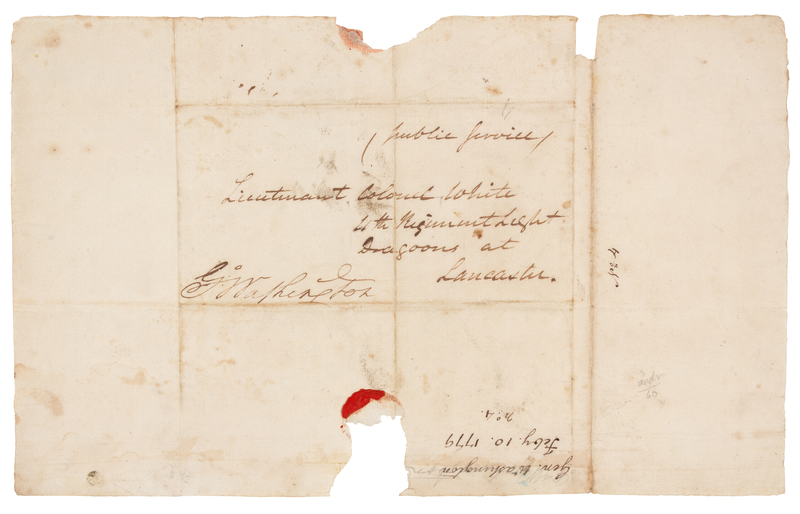 (public Service)
Lieutenant Colonel White
4th Regiment Light
Dragoons at
Lancaster.
Go Washington
Genl. Washington
Feby. 10. 1779
No 4.